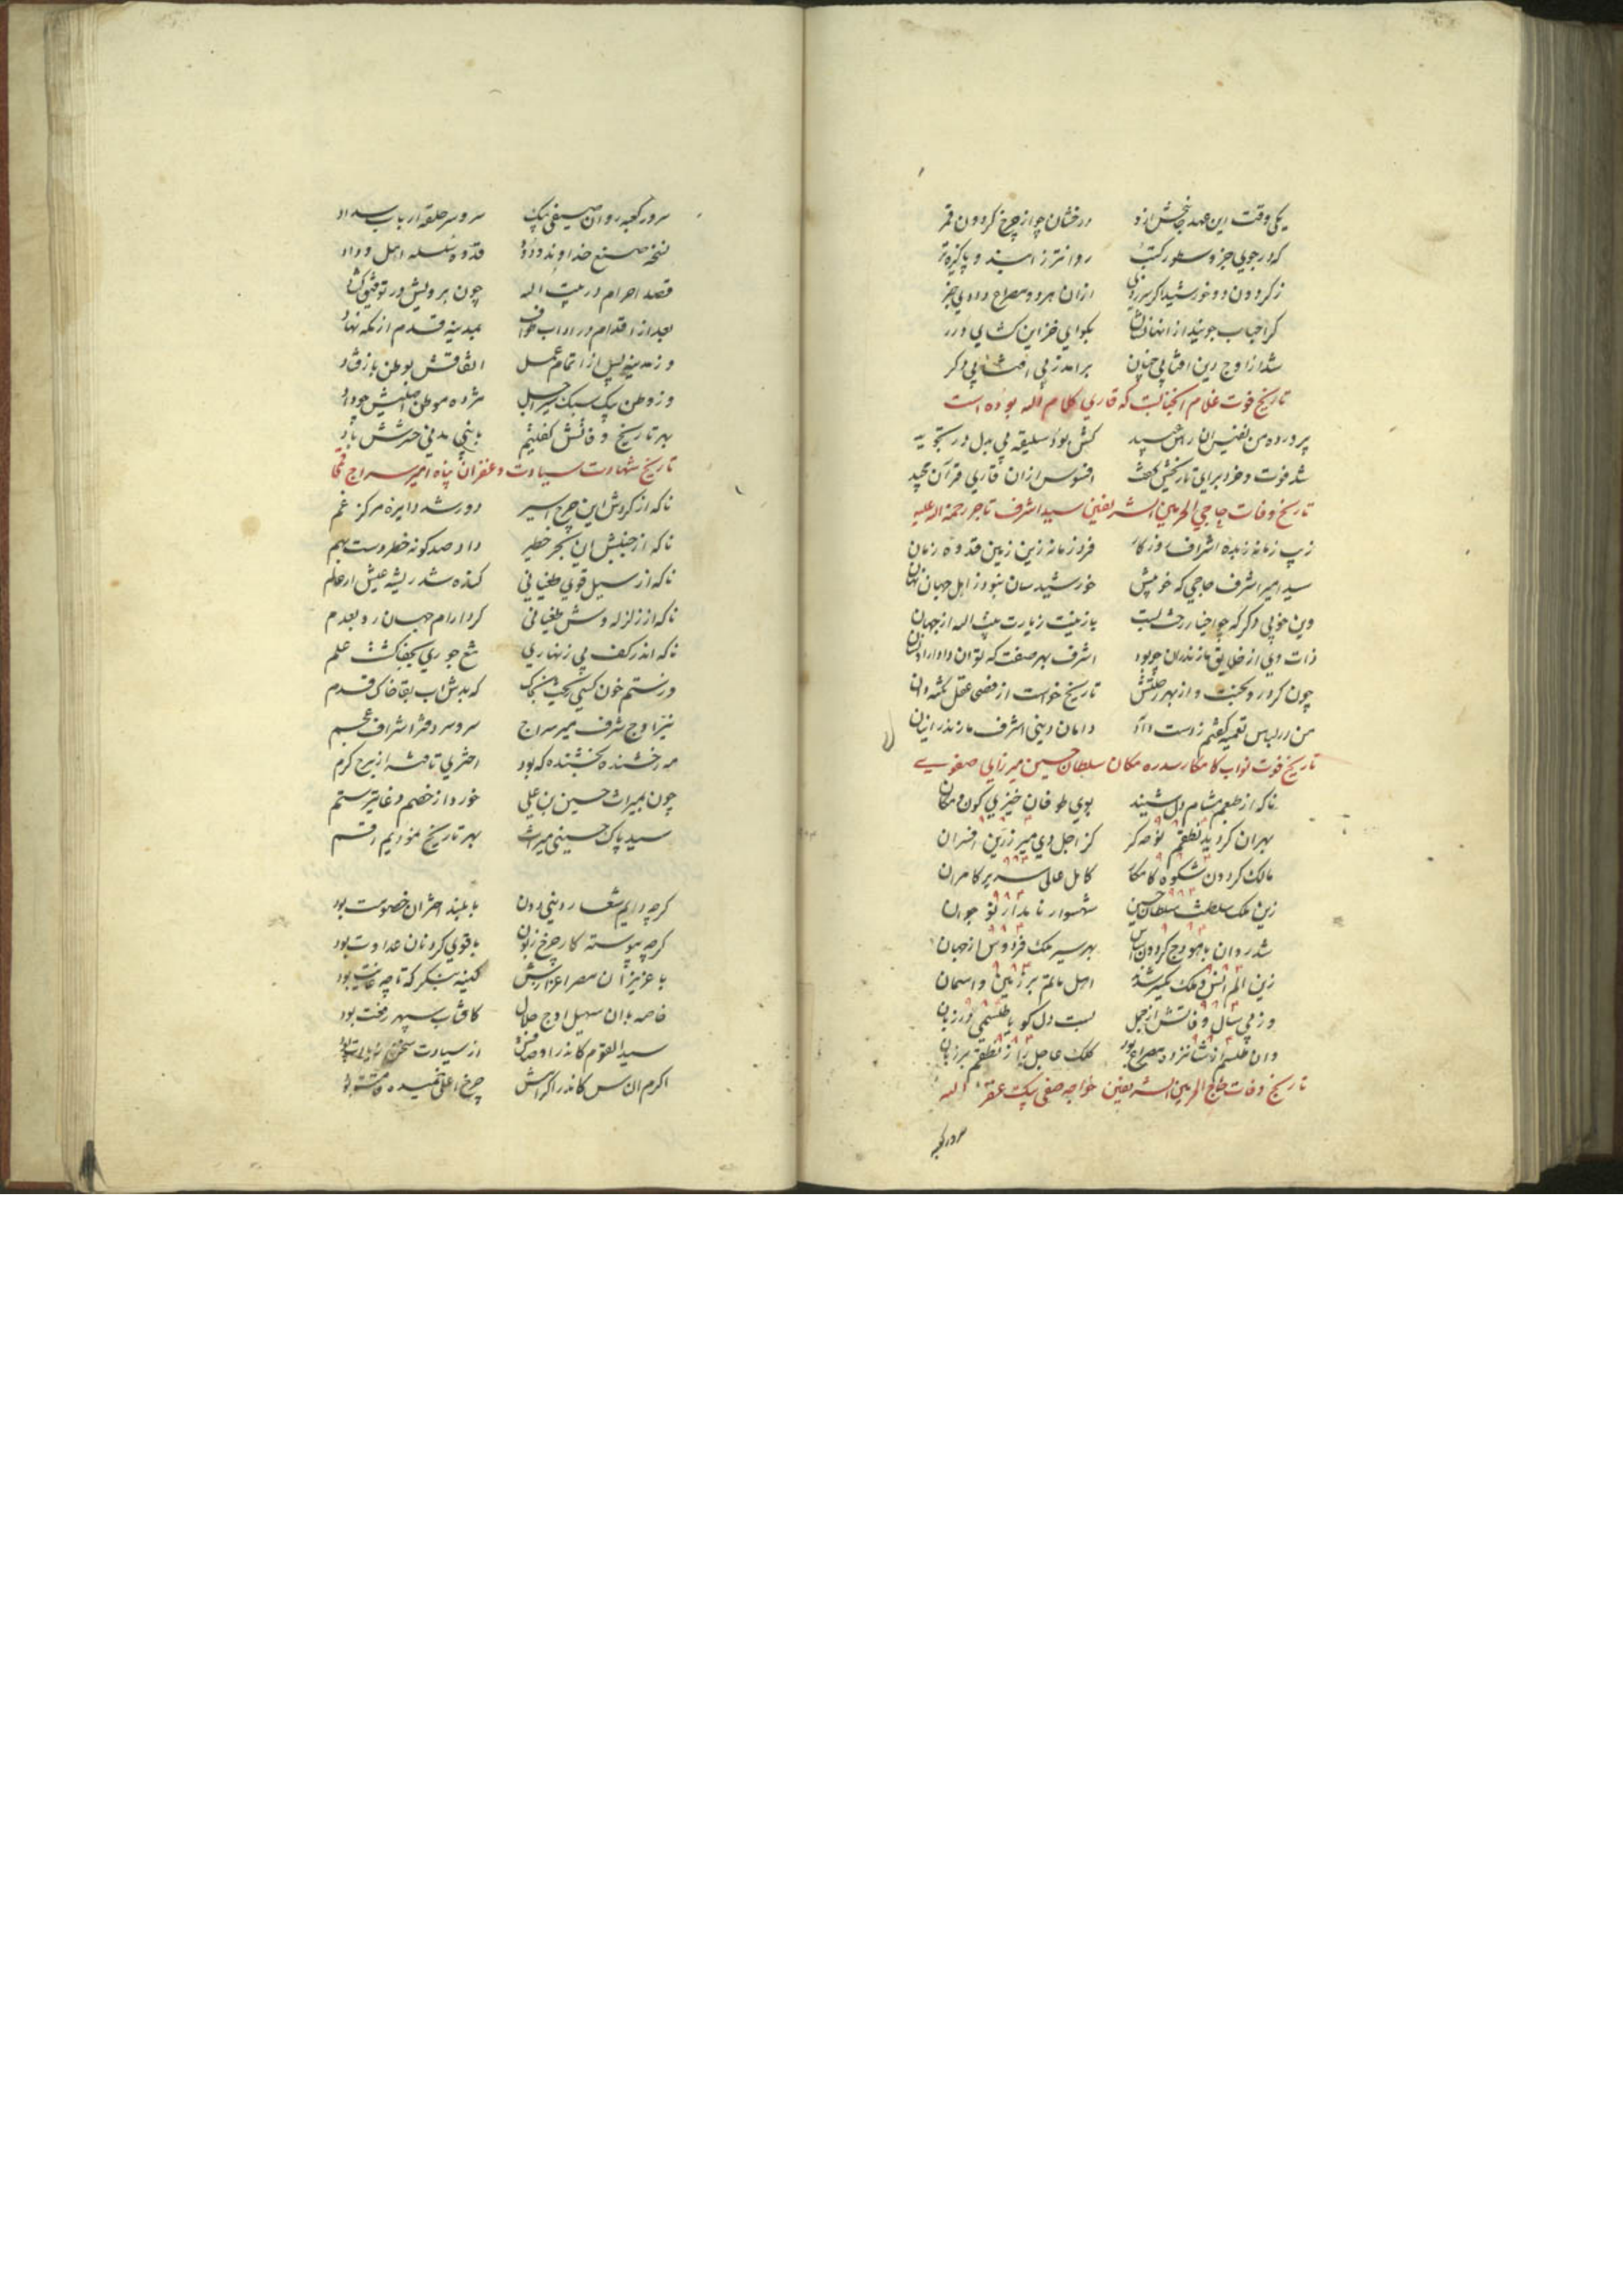 یکی وقت این عهد درخشان چو از چرخ گردون قمر
که در جوی جز و سطور کتب روانتر ز آبند و پاکیزه تر
ز گردون دو خورشید اگر سرزدی ازان هر دو مصراع دادی خبر
گر احباب جویند از آنها نشان بگو ای خزاین گشای درر
شد از اوج دین آفتابی چنین برآمد ز پی آفتابی دگر
تاریخ فوت غلام که قاری کلام اله بوده است
پرورده من کش بود سلیقه بی بدل در تجوید
شد فوت و خرد برای تاریخش گفت افسوس ازان قاری قرآن مجید
تاریخ وفات حاجی الحرمین الشریفین سید اشرف تاجر رحمة اله علیه
زیب زمانه زبده اشراف روزگار فرد زمانه زین زمین قدوه زمان
سید امیر اشرف حاجی که خور شیدسان نبود ز اهل جهان نهان
وین خوبی دگر که چو احباب رخت بست باز نیت زیارت بیت اله از جهان
ذات وی از خلایق مازندران چو بود اشرف بهر صفت که توان داد ازان نشان
چون کرد رو بجنت و از بهر رحلتش تاریخ خواست از فصحا عقل نکته دان
من در لباس تعمیه گفتم ز دست داد دامان دینی اشرف مازندرانیان
تاریخ فوت نواب کامکار سدره مکان سلطان حسین میرزای صفوی
ناگه از طبعم مشام دل شنید بوی طوفان خیزی کون و مکان
بهر آن گردید نطقم نوحه گر کز اجل دی میر زرین افسران
مالک گردون شکوه کامکار کامل عالی سریر کامران
زین ملک سلطنت سلطان حسین شهسوار نامدار نوجوان
شد روان با هودج گردون اساس بهر سیر ملک فردوس از جهان
زین الم انس و ملک یکسر شدند اهل ماتم بر زمین و آسمان
وز پی سال وفاتش از جمل بست دل گویا طلسمی در زبان
وان طلسم از شانزده مصراع بود کلک عاجل راز نطقم بر زبان
تاریخ وفات حاج الحرمین الشریفین خواجه صفی بیک غفره اله
سرور کعبه
سرور کعبه روان صیفی بیک سر و سر حلقه ارباب سداد
نسخه صنع خداوند ودود قدوه سلسله اهل وداد
قصد احرام در بیت اله چون برویش در توفیق گشاد
بعد از اقدام در آداب طواف بمدینه قدم از مکه نهاد
وز مدینه پس از اتمام عمل اتفاقش بوطن باز فتاد
وز وطن پیک سبک سیر اجل مژده موطن اصلیش چو داد
بهر تاریخ وفاتش گفتیم با نبی مدنی حشرش باد
تاریخ شهادت سیادت و غفران پناه امیر سراج
ناگه از گردش این چرخ اسیر دور شد دایره مرکز غم
ناگه از جنبش این بحر خطیر داد صد گونه خطر دست بهم
ناگه از سیل قوی طغیانی کنده شد ریشه عیش از عالم
ناگه از زلزله وش طغیانی کرد آرام جهان رو بعدم
ناگه اندر کف بی زنهاری تیغ جوری بجفا گشت علم
وز ستم خون کسی ریخت بخاک که بدش آب بقا خاک قدم
نیر اوج شرف میر سراج سر و سر دفتر اشراف عجم
مه رخشنده بخشنده که بود اختری تافته از برج کرم
چون بمیراث حسین بن علی خورد از خصم دغا تیر ستم
سید پاک حسینی میراث بهر تاریخ نمودیم رقم
گرچه دایم شعار دنیی دون با بلند اختران خصومت بود
گرچه پیوسته کار چرخ زبون با قوی گردنان عداوت بود
با عزیز آن مصر اعزازش کینه بنگر که تا چه غایت بود
خاصه با آن سهیل اوج جلال کافتاب سپهر رفعت بود
سید القوم کاندر اوصافش از سیادت سخن
اکرم الناس کاندر اکرامش چرخ اعلی